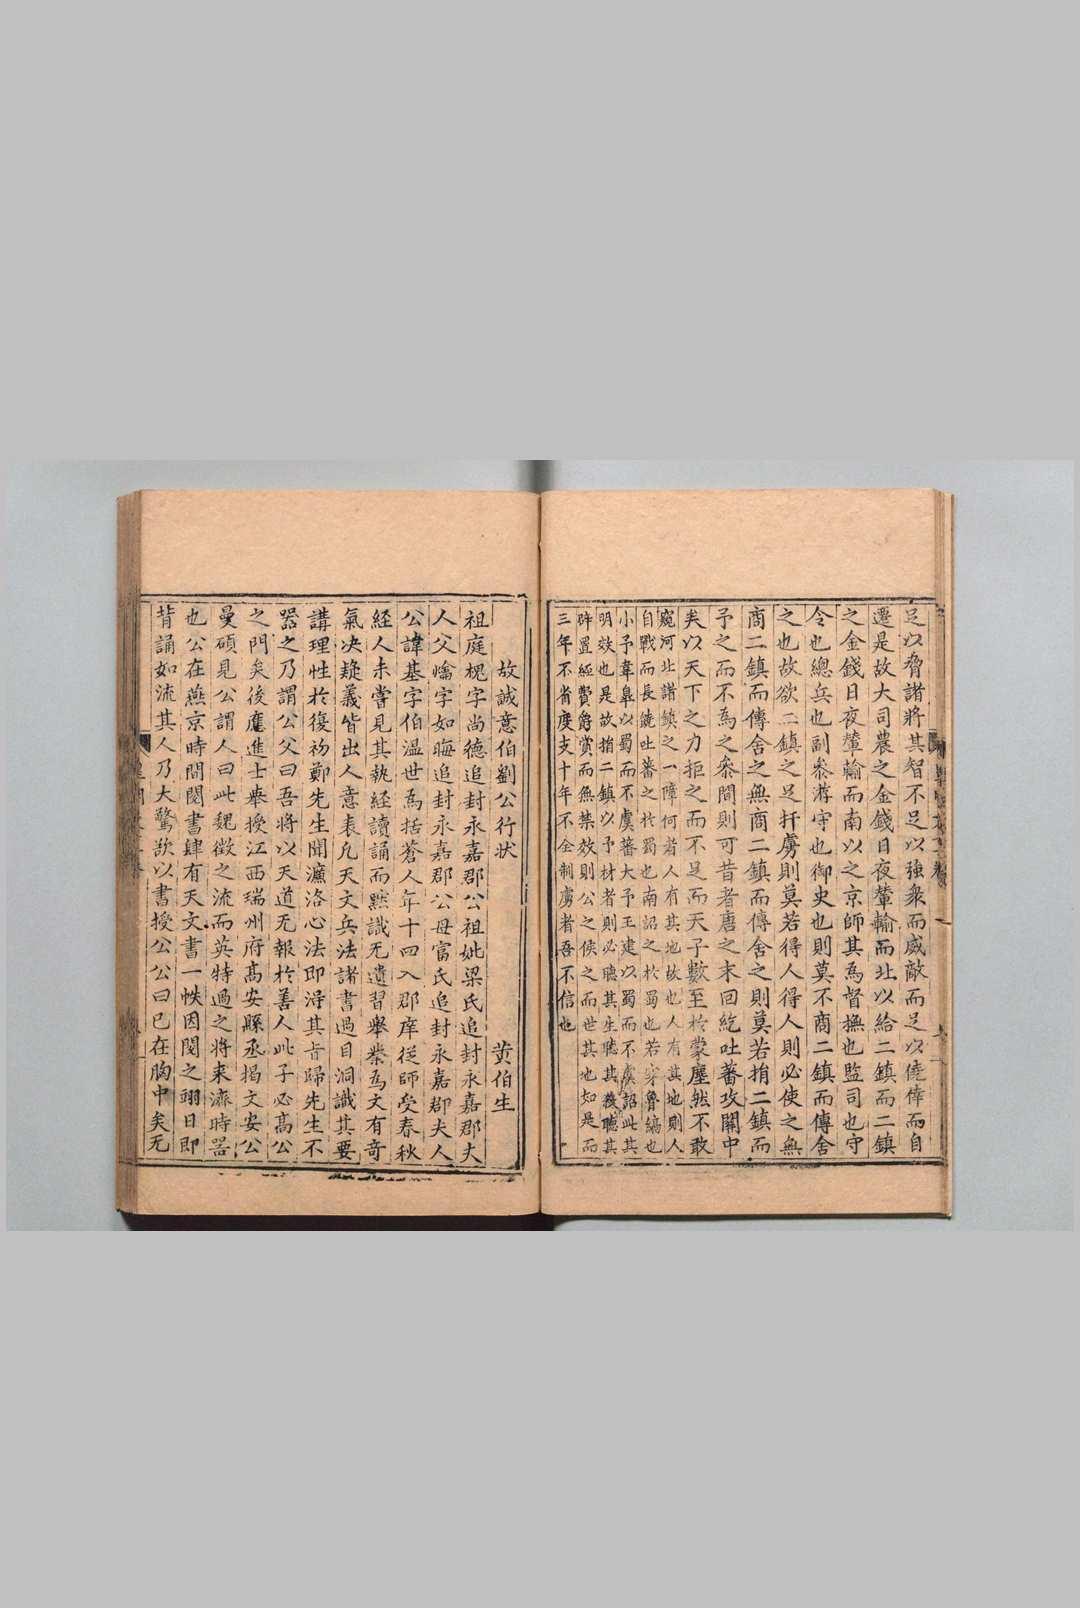 足以脅諸將其智不足以強衆而威敵而足以僥倖而自
遷是故大司農之金錢日夜輦輸而北以給二鎮而二鎮
之金錢日夜輦輸而南以之京師其為督撫也監司也守
令也總兵也副叅游守也御史也則莫不商二鎮而傳舍
之也故欲二鎮之足扞虜則莫若得人得人則必使之無
商二鎮而傳舍之無商二鎮而傳舍之則莫若捐二鎮而
予之而不為之叅間則可昔者唐之末回紇吐蕃攻關中
矣以天下之力拒之而不足而天子數至於蒙塵然不敢
窺河北諸鎮之一障何者人有其地故也人有其地則人
自戰而長饒吐蕃之於蜀也南詔之於蜀也若穿魯縞也
小予韋皐以蜀而不虞蕃大予王建以蜀而不虞詔此其
明效也是故捐二鎮以予材者則必聽其生聽其殺聽其
辟置經費爵賞而無禁效則公之侯之而世其地如是而
三年不省度支十年不全制虜者吾不信也
故誠意伯劉公行狀
黄伯生
祖庭槐字尚德追封永嘉郡公祖妣梁氏追封永嘉郡夫
人父爚字如晦追封永嘉郡公母富氏追封永嘉郡夫人
公諱基字伯溫世為括蒼人年十四入郡庠從師受春秋
經人未嘗見其執經讀誦而默識无遺習舉業為文有竒
氣决疑義皆出人意表凡天文兵法諸書過目洞識其要
講理性於復初鄭先生聞濂洛心法即淂其㫖歸先生不
器之乃謂公父曰吾將以天道无報於善人此子必髙公
之門矣後應進士舉授江西瑞州府髙安縣丞揭文安公
曼碩見公謂人曰此魏徵之流而英特過之將来濟時器
也公在燕京時間閱書肆有天文書一帙因閱之翊日即
背誦如流其人乃大驚欲以書授公公曰已在胸中矣无